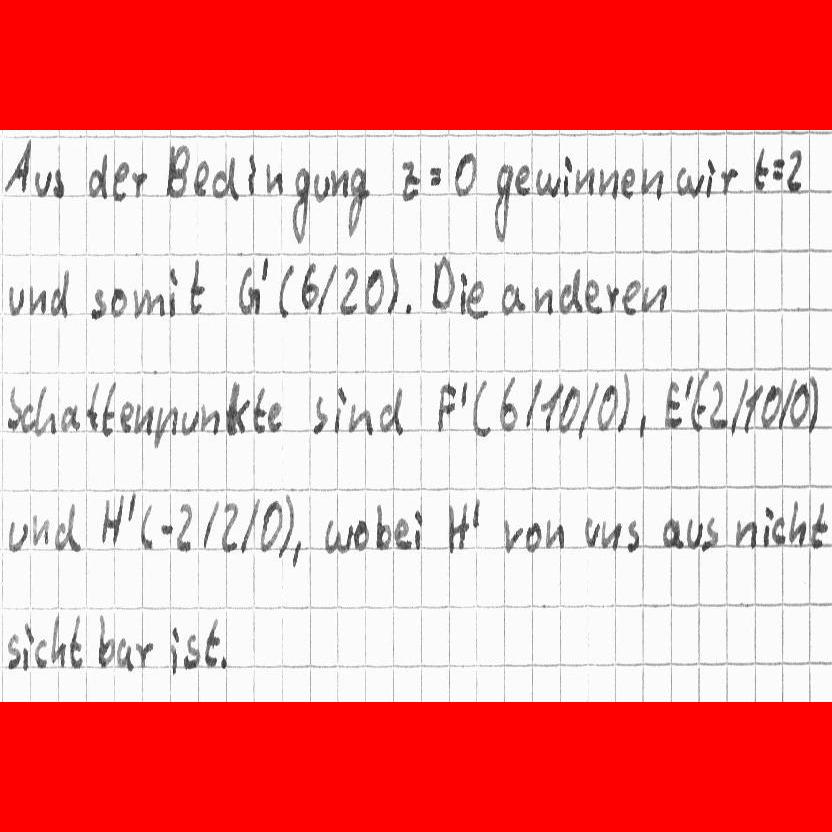 Aus der Bedingung z=0 gewinnen wir t=2
und somit G'(6/20). Die anderen
Schattenpunkte sind F'(6/10/0), E'(-2/10/0)
und H'(-2/2/0), wobei H' von uns aus nicht
sichtbar ist.